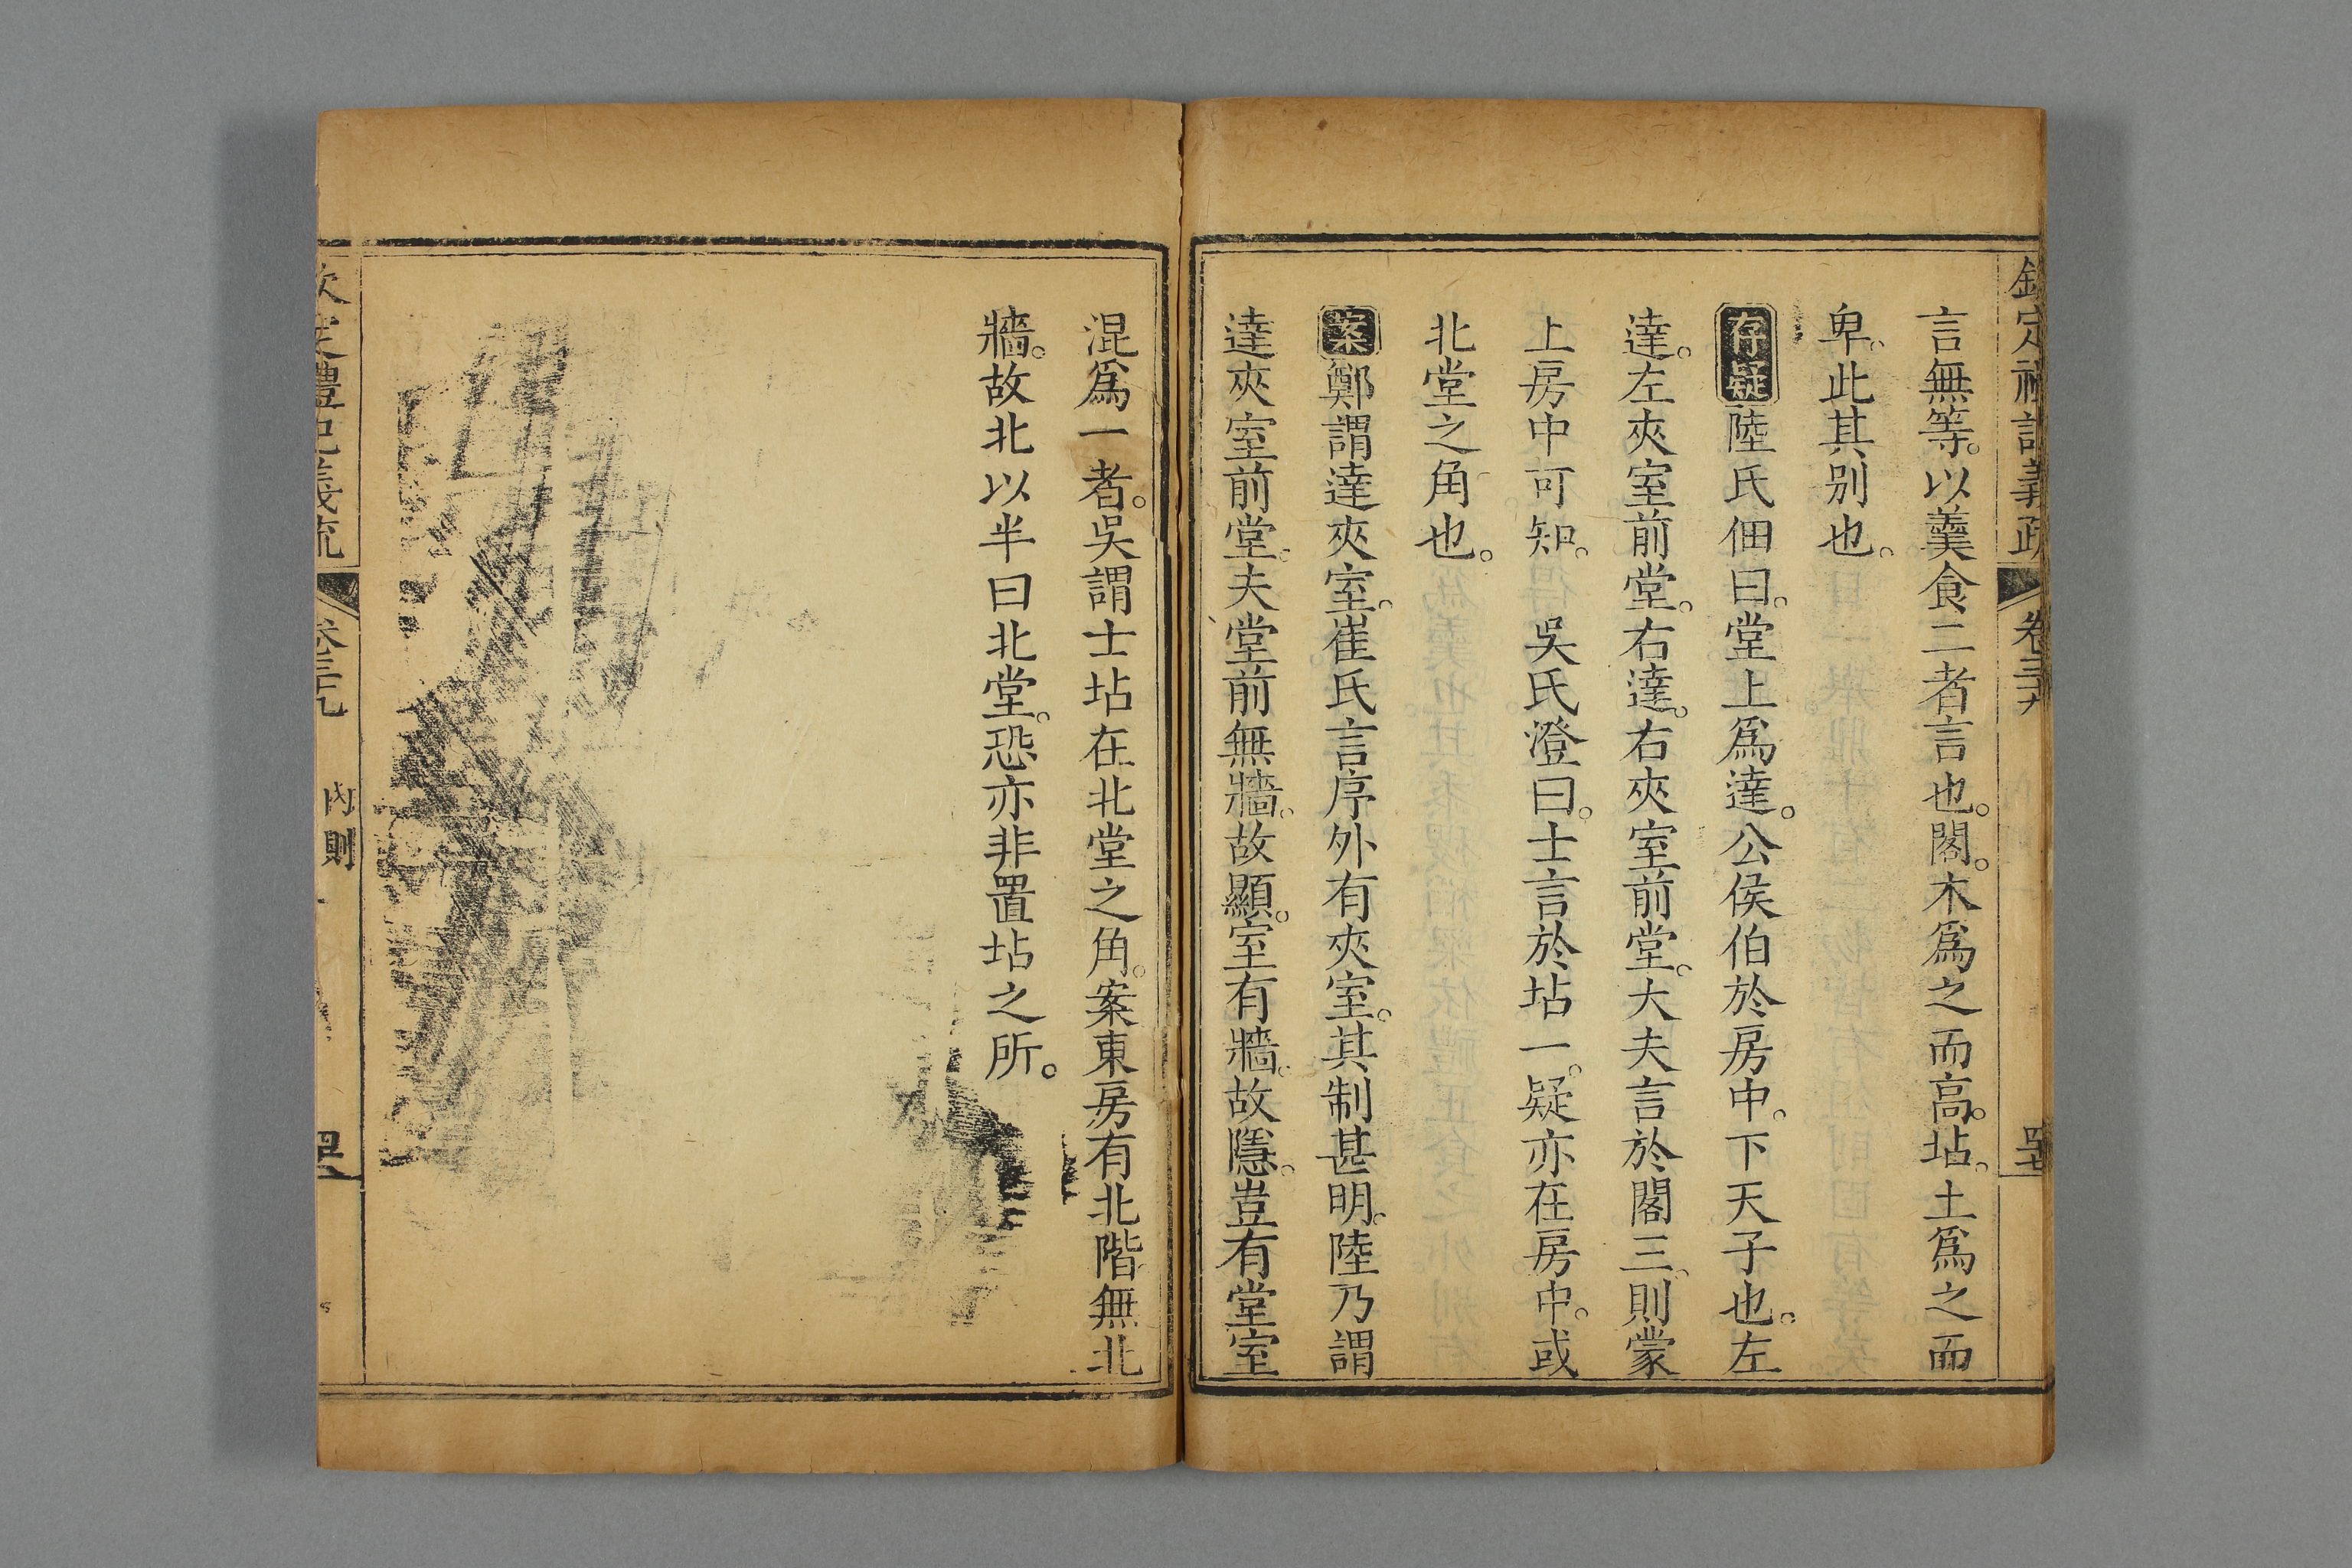 欽定禮記義疏 卷三十九
言無等。以羹食二者言也。閣。木爲之而高。坫。土爲之而
卑。此其别也。
存疑 陸氏佃曰。堂上爲達。公侯伯於房中。下天子也。左
達。左夾室前堂。右達。右夾室前堂。大夫言於閣三。則蒙
上房中可知。 吳氏澄曰。士言於坫一。疑亦在房中。或
北堂之角也。
案 鄭謂達夾室。崔氏言序外有夾室。其制甚明。陸乃謂
達夾室前堂。夫堂前無牆。故顯。室有牆。故隱。豈有堂室
混爲一者。吳謂士坫在北堂之角。案東房有北階無北
牆。故北以半曰北堂。恐亦非置坫之所。
欽定禮記義疏 卷三十九 內則